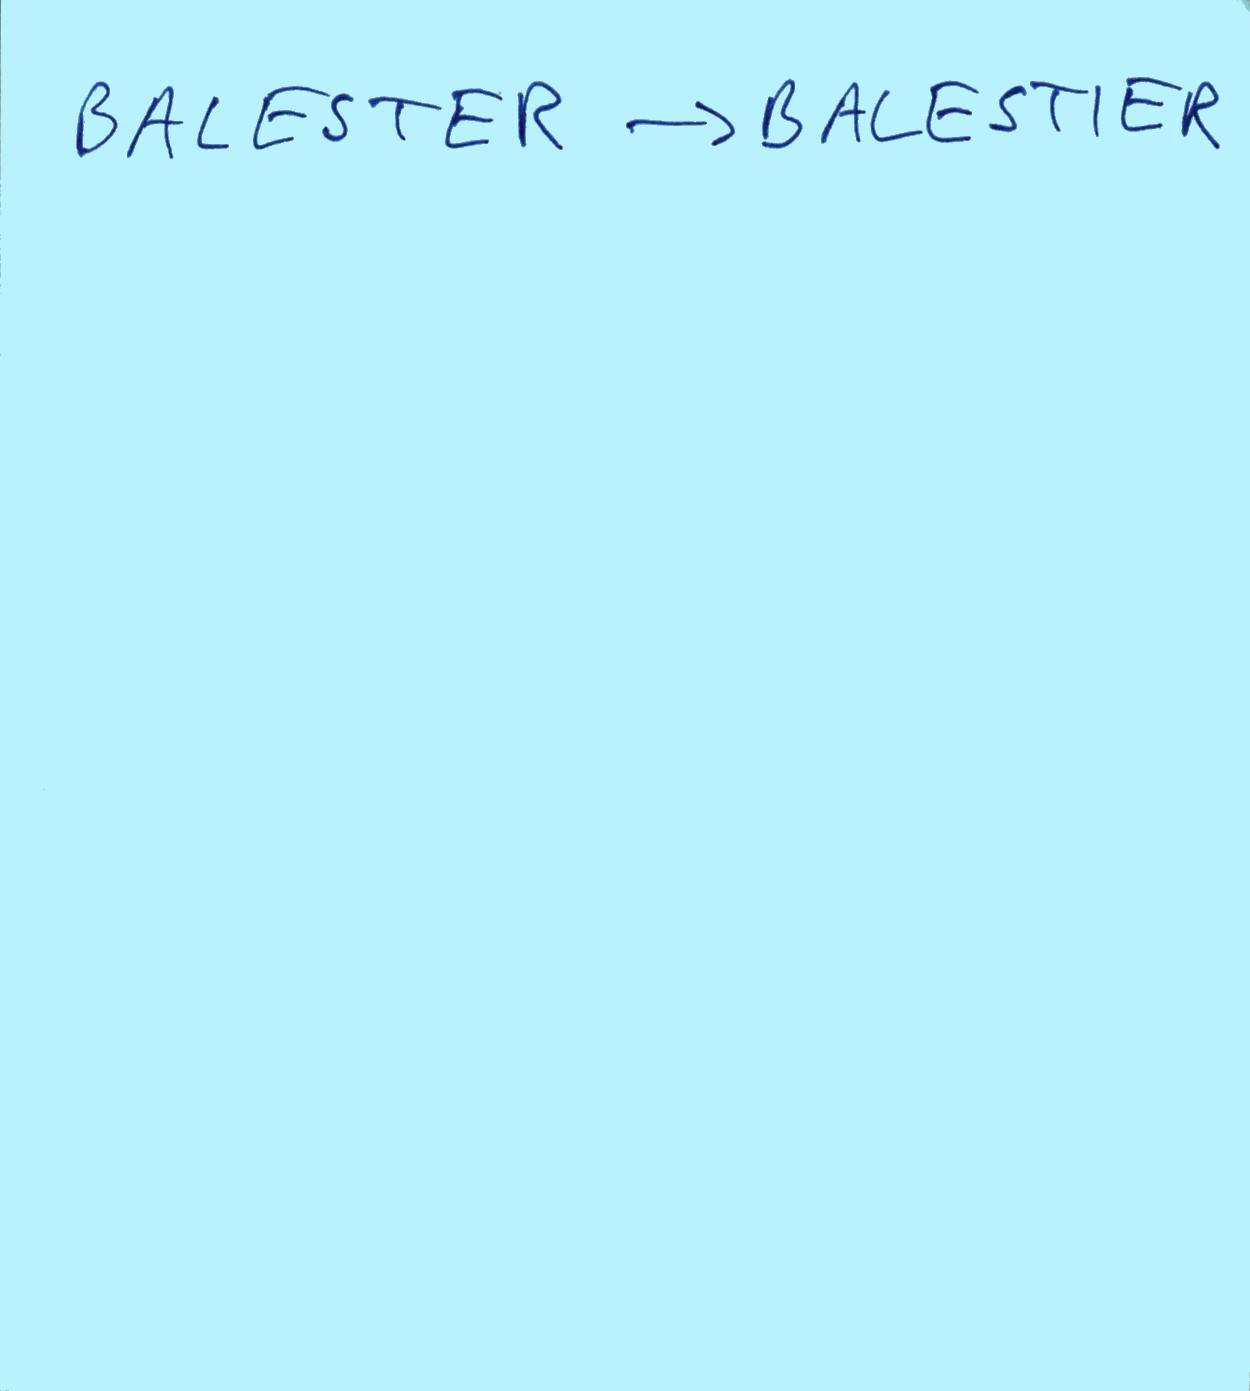 BALESTER → BALESTIER